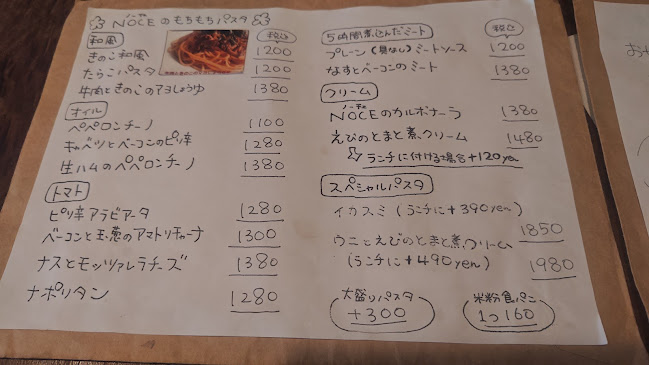 NOCEのもちもちパスタ
ノーチェ
和風
税込
きのこ和風 1200
たらこパスタ 1200
牛肉ときのこのアヨしょうゆ 1380
オイル
ペペロンチーノ 1100
キャベツとベーコンのピリ辛 1280
生ハムのペペロンチーノ 1380
トマト
ピリ辛アラビアータ 1280
ベーコンと玉葱のアマトリチャーナ 1300
ナスとモッツァレラチーズ 1380
ナポリタン 1280
5時間煮込んだミート
税込
プレーン(具なし)ミートソース 1200
なすとベーコンのミート 1380
クリーム
ノーチェ
NOCEのカルボナーラ 1380
えびのとまと煮、クリーム 1480
ランチに付ける場合+120yen
スペシャルパスタ
イカスミ(ランチに+390yen)
1850
ウニとえびのとまと煮、クリーム
(ランチに+490yen) 1980
大盛りパスタ
+300
米粉食パン
1つ160